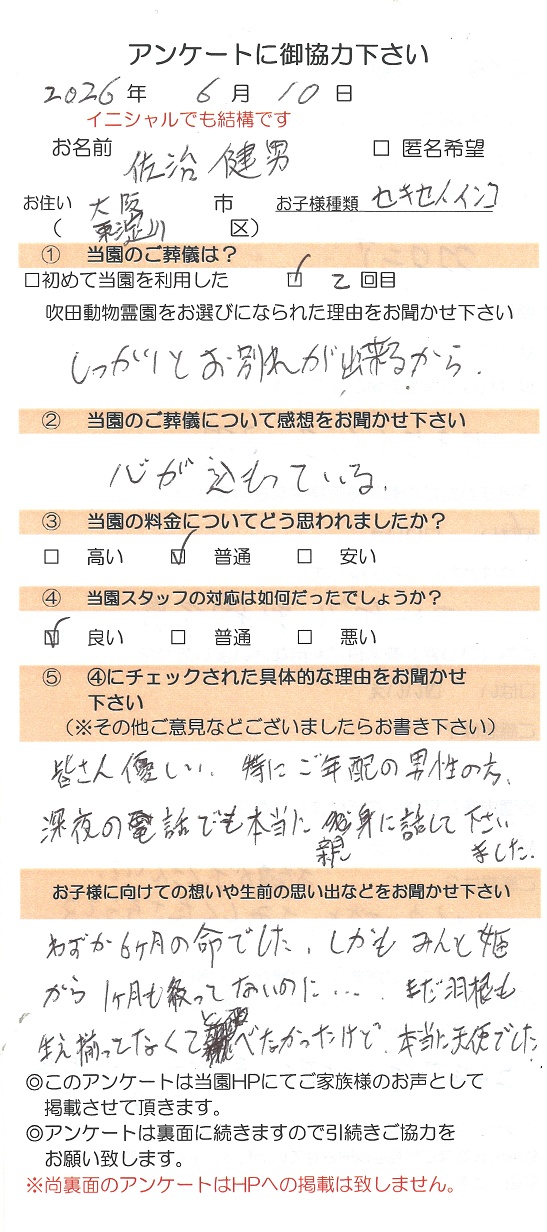 アンケートに御協力下さい
2026年 6月 10日
イニシャルでも結構です
お名前 佐治 健男 □ 匿名希望
お住い 大阪 市 お子様種類 セキセイインコ
( 東淀川 区)
① 当園のご葬儀は?
□初めて当園を利用した ☑ 2回目
吹田動物霊園をお選びになられた理由をお聞かせ下さい
しっかりとお別れが出来るから.
② 当園のご葬儀について感想をお聞かせ下さい
心が込もっている.
③ 当園の料金についてどう思われましたか?
□ 高い ☑ 普通 □ 安い
④ 当園スタッフの対応は如何だったでしょうか?
☑ 良い □ 普通 □ 悪い
⑤ ④にチェックされた具体的な理由をお聞かせ
下さい
(※その他ご意見などございましたらお書き下さい)
皆さん優しい. 特にご年配の男性の方、
深夜の電話でも本当に親身に話して下さい
ました.
お子様に向けての想いや生前の思い出などをお聞かせ下さい
わずか6ヶ月の命でした. しかも みんと姫
から 1ヶ月も経ってないのに…. まだ羽根も
生え揃ってなくて べなかったけど. 本当に天使でした
◎このアンケートは当園HPにてご家族様のお声として
掲載させて頂きます。
◎アンケートは裏面に続きますので引続きご協力を
お願い致します。
※尚裏面のアンケートはHPへの掲載は致しません。